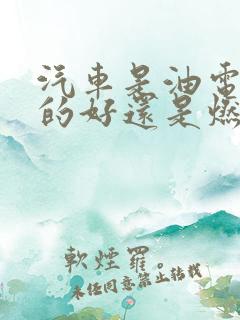 汽車是油電
的好還是燃
軟煙羅。
未任同意禁止转载